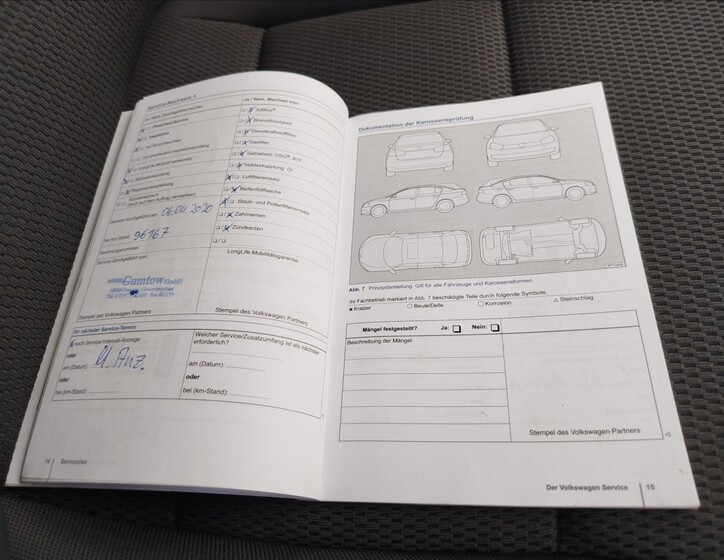 Service-Nachweis 5
Ja / Nein, Wechsel von:
AdBlue®
Bremsflüssigkeit
Dieselkraftstofffilter
Gasfilter
Getriebeöl, DSG®, ATF
Haldexkupplung, Öl
Luftfiltereinsatz
Reifenfüllflasche
Staub- und Pollenfiltereinsatz
Zahnriemen
Zündkerzen
Service durchgeführt am: 06.04.2020
bei km-Stand: 96167
Rechnungsnummer:
Service durchgeführt von:
LongLife Mobilitätsgarantie
Gumtow GmbH
Stempel des Volkswagen Partners
Stempel des Volkswagen Partners
Ihr nächster Service-Termin
nach Service-Intervall-Anzeige
oder
am (Datum):
oder
bei (km-Stand):
Welcher Service/Zusatzumfang ist als nächster
erforderlich?
am (Datum):
oder
bei (km-Stand):
14 Serviceplan
Dokumentation der Karosserieprüfung
Abb. 7 Prinzipdarstellung. Gilt für alle Fahrzeuge und Karosserieformen.
Ihr Fachbetrieb markiert in Abb. 7 beschädigte Teile durch folgende Symbole:
Kratzer Beule/Delle Korrosion Steinschlag
Mängel festgestellt? Ja: Nein:
Beschreibung der Mängel:
Stempel des Volkswagen Partners
Der Volkswagen Service 15